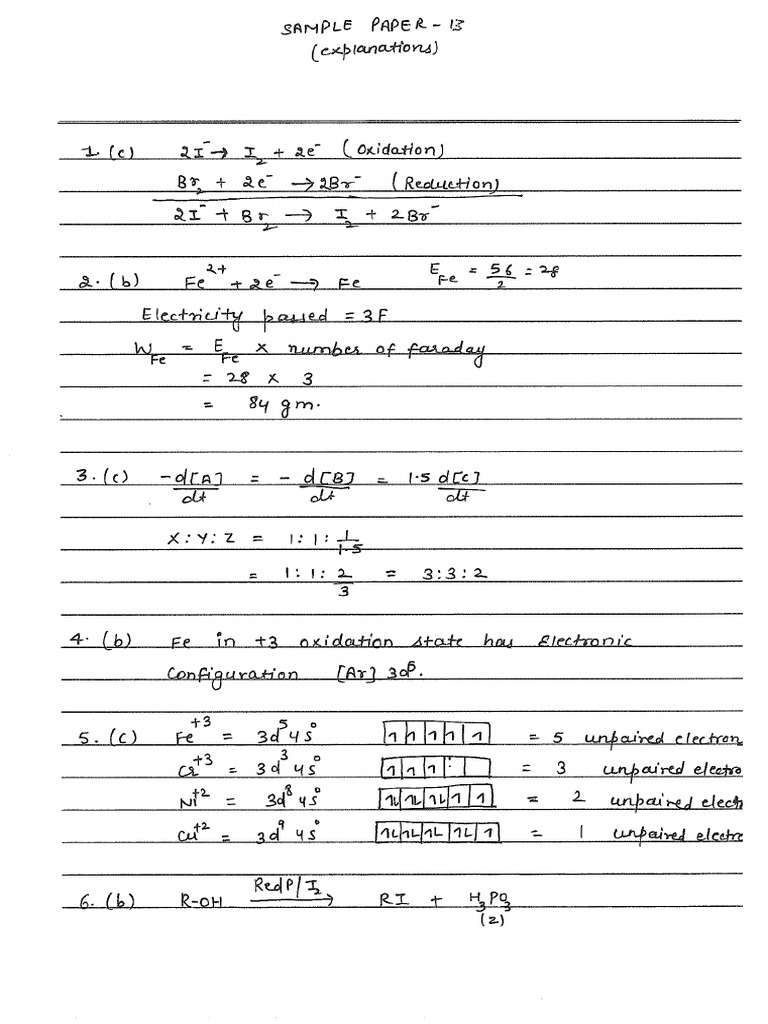 SAMPLE PAPER - 13
(explanations)
1. (c) 2I⁻ → I₂ + 2e⁻ (Oxidation)
Br₂ + 2e⁻ → 2Br⁻ (Reduction)
2I⁻ + Br₂ → I₂ + 2Br⁻
2. (b) Fe²⁺ + 2e⁻ → Fe E_Fe = 56/2 = 28
Electricity passed = 3F
W_Fe = E_Fe × number of faraday
= 28 × 3
= 84 gm.
3. (c) -d[A]/dt = - d[B]/dt = 1.5 d[C]/dt
X : Y : Z = 1 : 1 : 1/1.5
= 1 : 1 : 2/3 = 3 : 3 : 2
4. (b) Fe in +3 oxidation state has Electronic
Configuration [Ar] 3d⁵.
5. (c) Fe⁺³ = 3d⁵ 4s⁰ 1 1 1 1 1 = 5 unpaired electron
Cr⁺³ = 3d³ 4s⁰ 1 1 1 = 3 unpaired electro
Ni⁺² = 3d⁸ 4s⁰ 1L 1L 1L 1 1 = 2 unpaired elect
Cu⁺² = 3d⁹ 4s⁰ 1L 1L 1L 1L 1 = 1 unpaired electro
6. (b) R-OH Red P/I₂ → RI + H₃PO₃
(z)